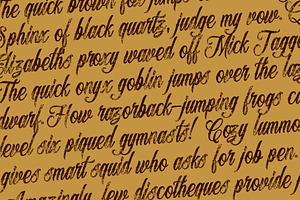 the quick brown fox jumps
Sphinx of black quartz, judge my vow.
Elizabeths proxy waved off Mick Tagg
The quick onyx goblin jumps over the la
dwarf. How razorback-jumping frogs c
level six piqued gymnasts! Cozy lummo
gives smart squid who asks for job pen.
Amazingly few discotheques provide